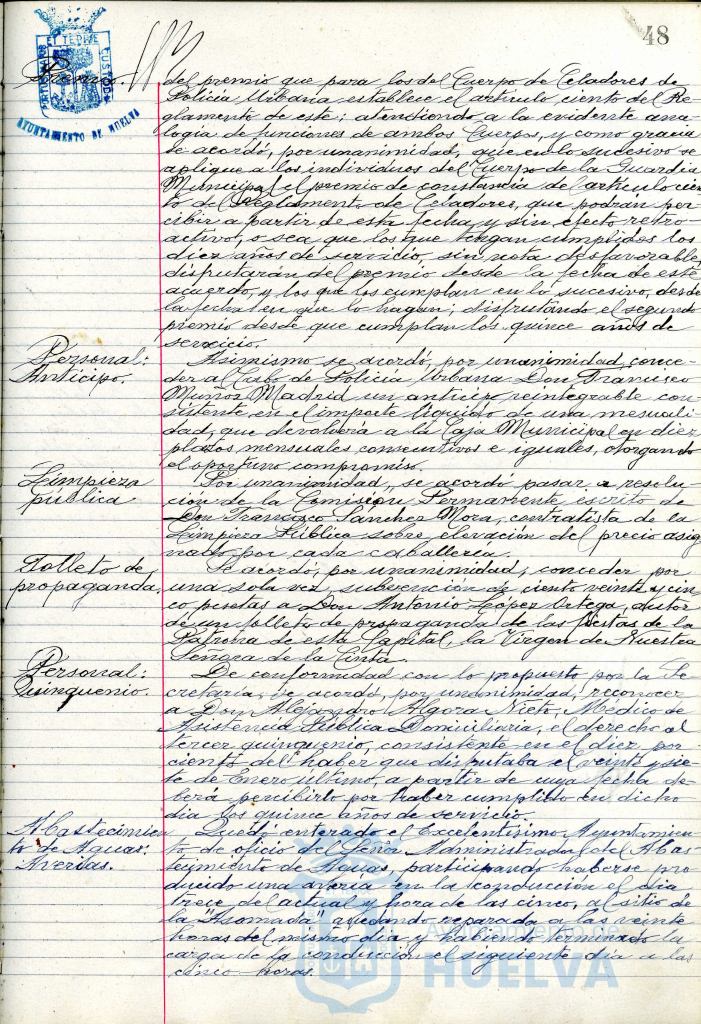 48
PORTUS MARIS ET TERRE CUSTODIA
AYUNTAMIENTO DE HUELVA
Premio.
del premio que para los del Cuerpo de Celadores de
Policía Urbana establece el artículo ciento del Re-
glamento de este; atendiendo a la evidente ana-
logía de funciones de ambos Cuerpos, y como gracia
se acordó, por unanimidad, que en lo sucesivo se
aplique a los individuos del Cuerpo de la Guardia
Municipal el premio de constancia del artículo cien-
to del Reglamento de Celadores, que podrán per-
cibir a partir de esta fecha y sin efecto retro-
activo, o sea que los que tengan cumplidos los
diez años de servicio, sin nota desfavorable,
disfrutarán del premio desde la fecha de este
acuerdo, y los que los cumplan en lo sucesivo, desde
la fecha en que lo hagan; disfrutando el segundo
premio desde que cumplan los quince años de
servicio.
Personal:
Anticipo.
Asimismo se acordó, por unanimidad, conce-
der al Cabo de Policía Urbana Don Francisco
Muñoz Madrid un anticipo reintegrable con-
sistente en el importe líquido de una mesuali-
dad, que devolverá a la Caja Municipal en diez
plazos mensuales consecutivos e iguales, otorgando
el oportuno compromiso.
Limpieza
pública
Por unanimidad, se acordó pasar a resolu-
ción de la Comisión Permanente escrito de
Don Francisco Sánchez Mora, contratista de la
Limpieza Pública sobre elevación del precio asig-
nado por cada caballería.
Folleto de
propaganda.
Se acordó, por unanimidad, conceder por
una sola vez, subvención de ciento veinte y cin-
co pesetas a Don Antonio López Ortega, autor
de un folleto de propaganda de las Fiestas de la
Patrona de esta Capital, la Virgen de Nuestra
Señora de la Cinta.
Personal:
Quinquenio.
De conformidad con lo propuesto por la Se-
cretaría, se acordó, por unanimidad, reconocer
a Don Alejandro Algora Nieto, Médico de
Asistencia Pública Domiciliaria, el derecho al
tercer quinquenio, consistente en el diez por
ciento del haber que disfrutaba el veinte y sie-
te de Enero último, a partir de cuya fecha de-
berá percibirlo por haber cumplido en dicho
día los quince años de servicio.
Abastecimien-
to de Aguas:
Averías.
Quedó enterado el Excelentísimo Ayuntamien-
to de oficio del Señor Administrador del Abas-
tecimiento de Aguas, participando haberse pro-
ducido una avería en la conducción el día
trece del actual y hora de las cinco, al sitio de
la "Asomada" quedando reparada a las veinte
horas del mismo día y habiendo terminado la
carga de la conducción el siguiente día a las
cinco horas.
Ayuntamiento de
HUELVA